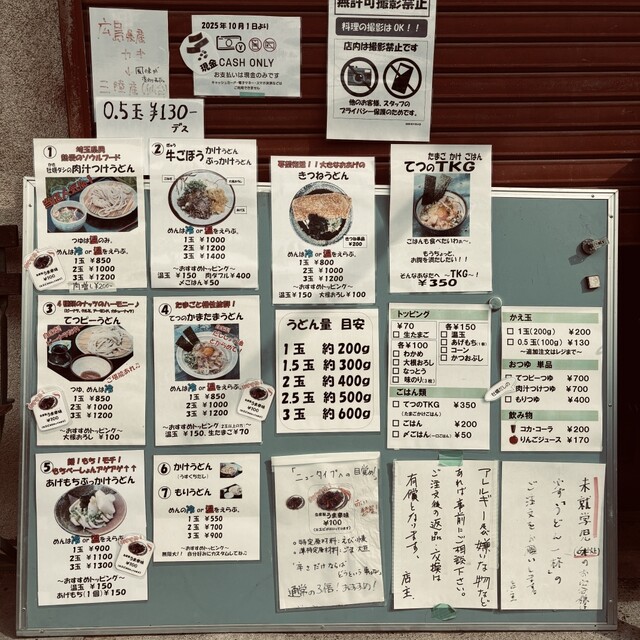 広島県産
カキ
三陸産
0.5玉 ¥130-
デス
2025年10月1日より
現金
CASH ONLY
お支払いは現金のみです
無許可撮影禁止
料理の撮影はOK！！
店内は撮影禁止です
他のお客様、スタッフの
プライバシー保護のためです。
①
埼玉県民
熱愛のソウルフード
牡蠣ダシの肉汁つけうどん
つゆは温のみ。
めんは冷 or 温をえらぶ。
1玉 ¥850
2玉 ¥1000
3玉 ¥1200
肉増し ¥200
②
牛ごぼう かけうどん
ぶっかけうどん
めんは冷 or 温をえらぶ。
1玉 ¥1000
2玉 ¥1200
3玉 ¥1400
～おすすめトッピング～
温玉 ¥150 肉ダブル ¥400
〆ごはん ¥50
きつねうどん
めんは冷 or 温をえらぶ。
1玉 ¥800
2玉 ¥1000
3玉 ¥1200
～おすすめトッピング～
温玉 ¥150 大根おろし ¥100
たまご かけ ごはん
てつのTKG
ごはんも食べたいわぁ～。
もうちょっと、
お腹を満たしたい！！
そんなあなたへ ～TKG～！
¥350
③
4種類のナッツのハーモニー♪
てつピーうどん
つゆ、めんは冷 or 温をえらぶ。
1玉 ¥850
2玉 ¥1000
3玉 ¥1200
～おすすめトッピング～
大根おろし ¥100
④
たまごと相性抜群！
てつのかまたまうどん
めんは冷 or 温をえらぶ。
1玉 ¥850
2玉 ¥1000
3玉 ¥1200
～おすすめトッピング～
温玉 ¥150、生たまご ¥70
うどん量 目安
1玉 約200g
1.5玉 約300g
2玉 約400g
2.5玉 約500g
3玉 約600g
トッピング
¥70
生たまご
各¥100
わかめ
大根おろし
なっとう
味のり(3枚)
各¥150
温玉
あげもち(1個)
コーン
かつおぶし
ごはん類
てつのTKG ¥350
(たまごかけごはん)
ごはん ¥200
〆ごはん ¥50
かえ玉
1玉(200g) ¥200
0.5玉(100g) ¥130
～追加注文はレジまで～
おつゆ 単品
てつピーつゆ ¥700
肉汁つけつゆ ¥700
もりつゆ ¥400
飲み物
コカ・コーラ ¥200
りんごジュース ¥170
⑤
麺！もち！モチ！
もちべーしょんアゲアゲ↑↑
あげもちぶっかけうどん
めんは冷 or 温をえらぶ。
1玉 ¥850
2玉 ¥1100
3玉 ¥1300
～おすすめトッピング～
温玉 ¥150
あげもち(1個) ¥150
⑥
かけうどん
(うすくちだし)
⑦
もりうどん
めんは冷 or 温をえらぶ。
1玉 ¥550
2玉 ¥700
3玉 ¥900
～おすすめトッピング～
無限大！ 自分好みにカスタムしてね♪
「ニュータイプへの目覚め」
うま辛味
¥100
アレルギー&嫌な物など
あれば事前にご相談下さい。
ご注文後の返品・交換は
有償となります。
店主